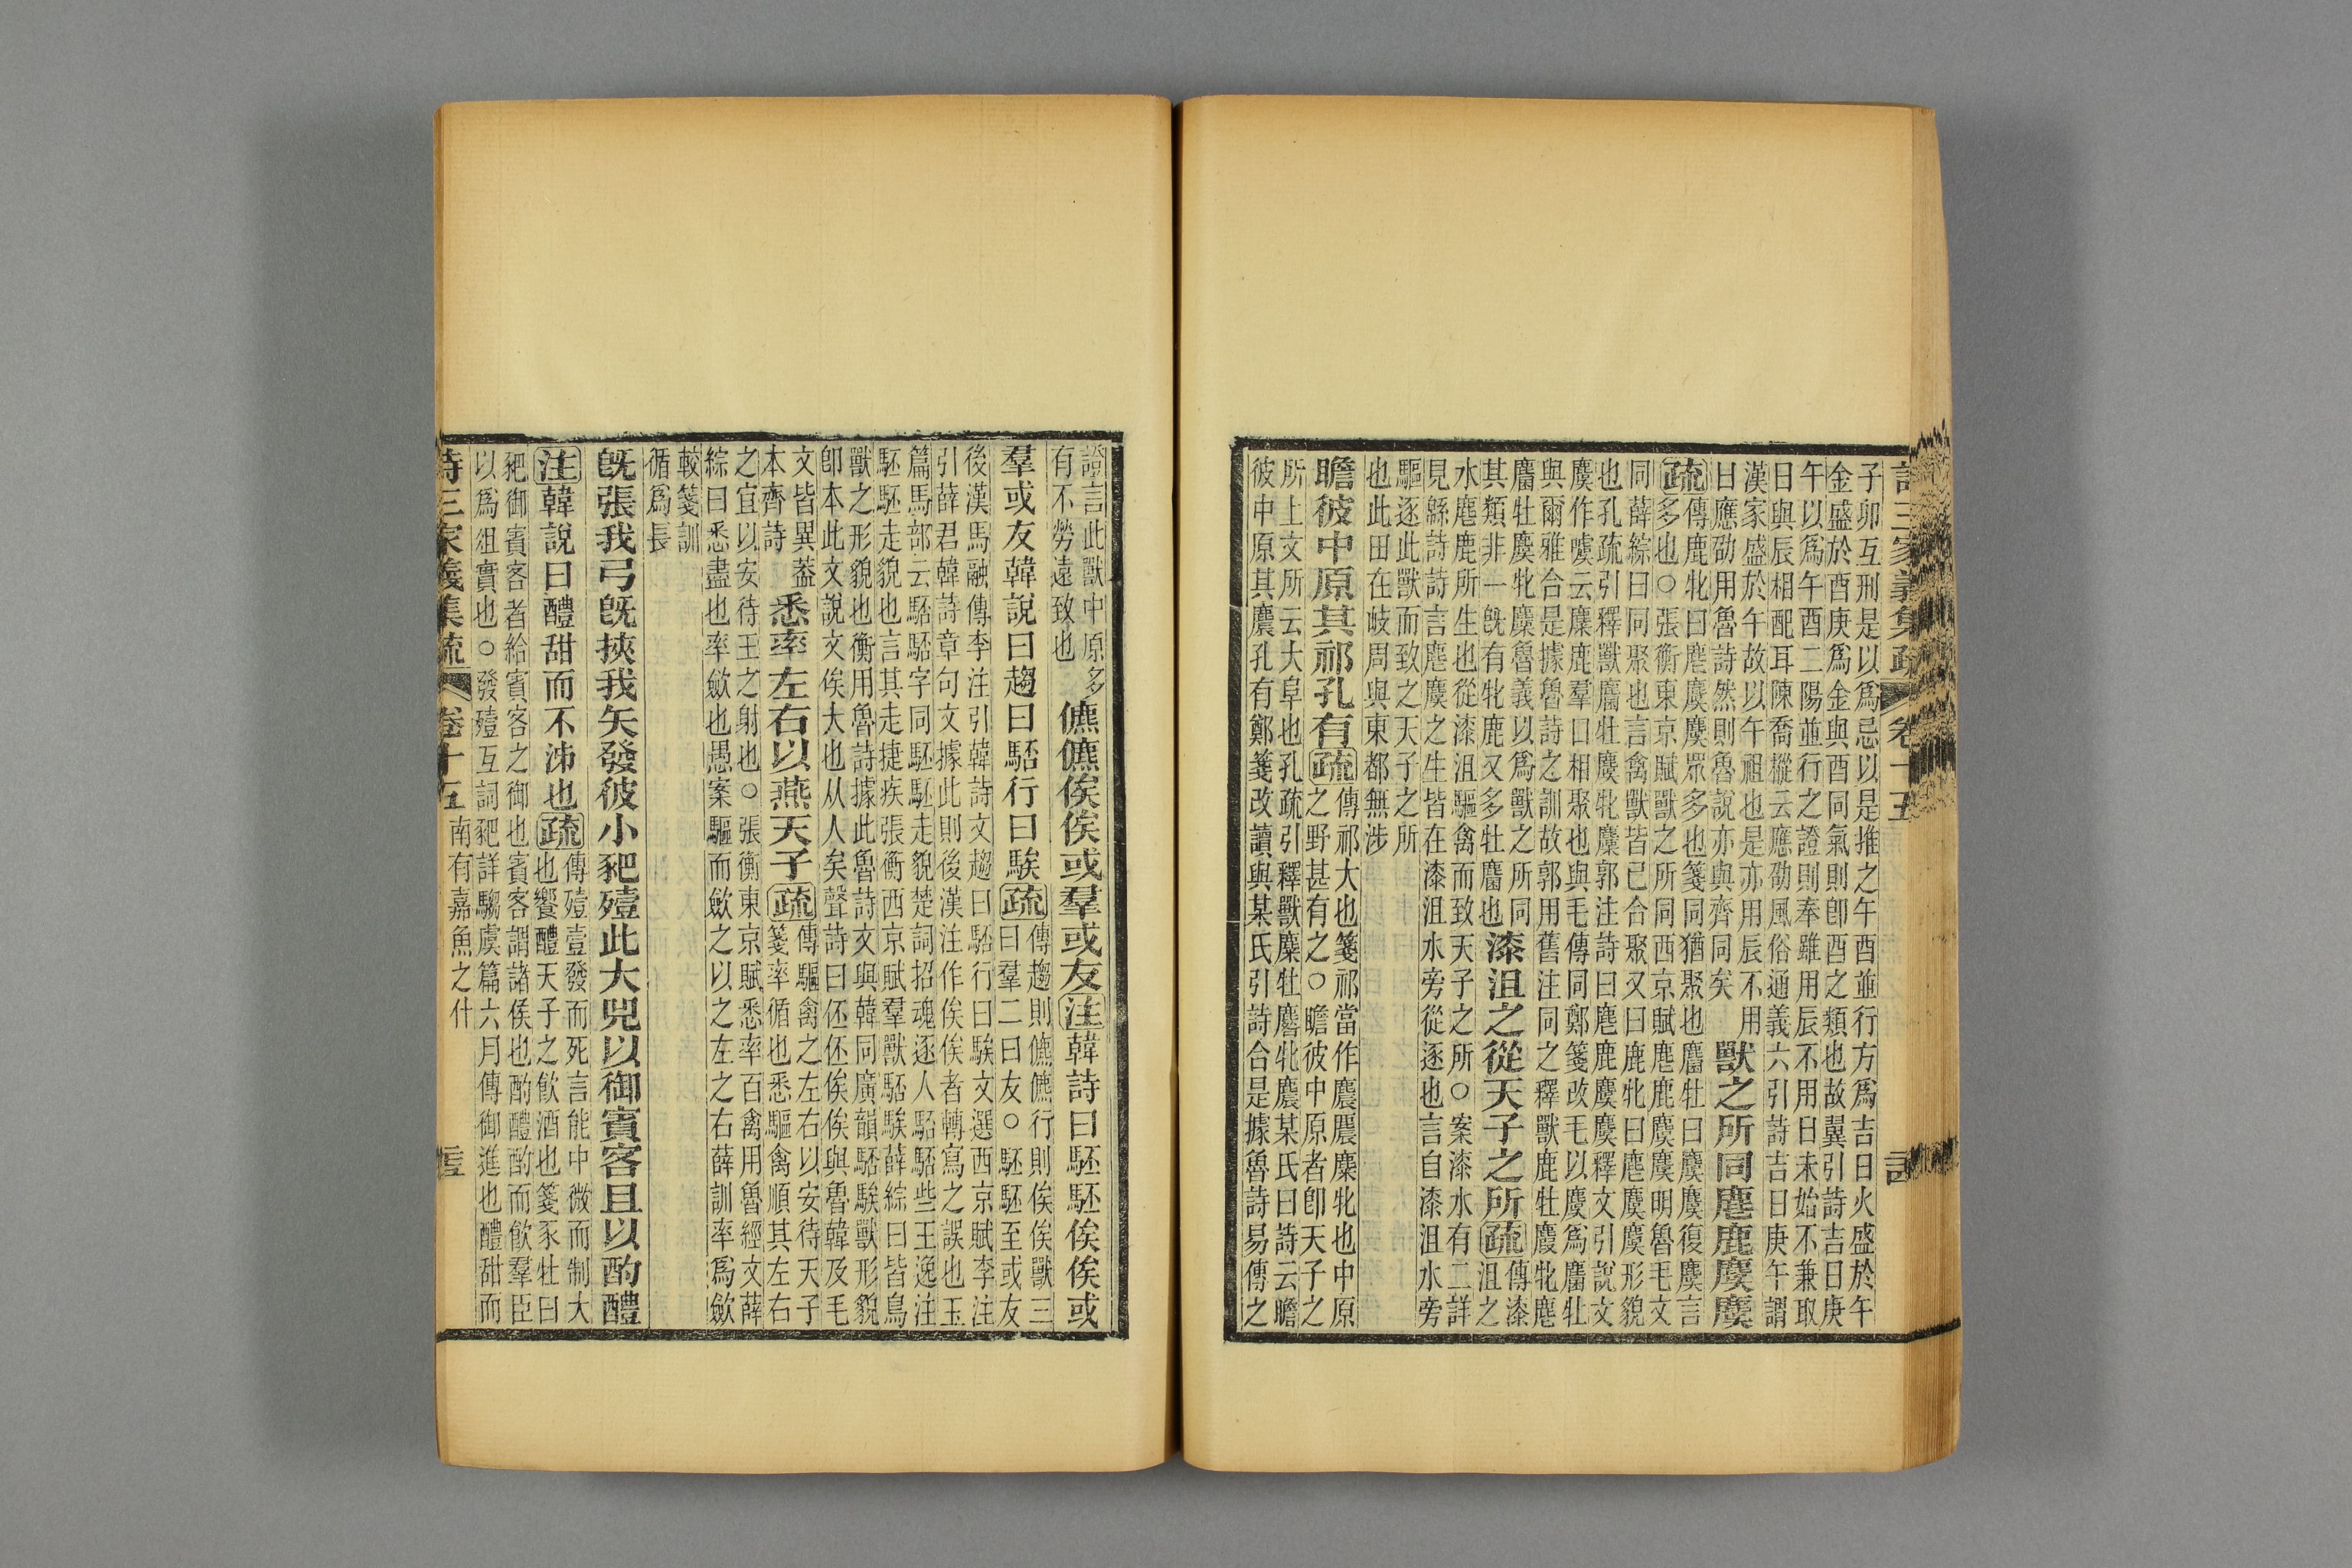 詩三家義集疏 卷十五
子卯互刑是以爲忌以是推之午酉並行方爲吉日火盛於午
金盛於酉庚爲金與酉同氣則卽酉之類也故翼引詩吉日庚
午以爲午酉二陽並行之證則奉雖用辰不用日未始不兼取
日與辰相配耳陳喬樅云應劭風俗通義六引詩吉日庚午謂
漢家盛於午故以午祖也是亦用辰不用
日應劭用魯詩然則魯說亦與齊同矣
獸之所同麀鹿麌麌
疏
傳鹿牝曰麀麌麌眾多也箋同猶聚也麕牡曰麌麌復麌言
多也○張衡東京賦獸之所同西京賦麀鹿麌麌明魯毛文
同薛綜曰同聚也言禽獸皆已合聚又曰鹿牝曰麀麌麌形貌
也孔疏引釋獸麕牡麌牝麜郭注詩曰麀鹿麌麌釋文引說文
麌作噳云麋鹿羣口相聚也與毛傳同鄭箋改毛以麌爲麕牡
與爾雅合是據魯詩之訓故郭用舊注同之釋獸鹿牡麚牝麀
麕牡麌牝麜魯義以爲獸之所同
其類非一旣有牝鹿又多牡麕也
漆沮之從天子之所
疏
傳漆
沮之
水麀鹿所生也從漆沮驅禽而致天子之所○案漆水有二詳
見緜詩詩言麀麌之生皆在漆沮水旁從逐也言自漆沮水旁
驅逐此獸而致之天子之所
也此田在岐周與東都無涉
瞻彼中原其祁孔有
疏
傳祁大也箋祁當作麎麎麋牝也中原
之野甚有之○瞻彼中原者卽天子之
所上文所云大阜也孔疏引釋獸麋牡麔牝麎某氏曰詩云瞻
彼中原其麎孔有鄭箋改讀與某氏引詩合是據魯詩易傳之
證言此獸中原多
有不勞遠致也
儦儦俟俟或羣或友
注
韓詩曰駓駓俟俟或
羣或友韓說曰趨曰駓行曰騃
疏
傳趨則儦儦行則俟俟獸三
曰羣二曰友○駓駓至或友
後漢馬融傳李注引韓詩文趨曰駓行曰騃文選西京賦李注
引薛君韓詩章句文據此則後漢注作俟俟者轉寫之誤也玉
篇馬部云駓駓字同駓駓走貌楚詞招魂逐人駓駓些王逸注
駓駓走貌也言其走捷疾張衡西京賦羣獸駓騃薛綜曰皆鳥
獸之形貌也衡用魯詩據此魯詩文與韓同廣韻駓騃獸形貌
卽本此文說文俟大也从人矣聲詩曰伾伾俟俟與魯韓及毛
文皆異葢
本齊詩
悉率左右以燕天子
疏
傳驅禽之左右以安待天子
箋率循也悉驅禽順其左右
之宜以安待王之射也○張衡東京賦悉率百禽用魯經文薛
綜曰悉盡也率斂也愚案驅而斂之以之左之右薛訓率爲斂
較箋訓
循爲長
旣張我弓旣挾我矢發彼小豝殪此大兕以御賓客且以酌醴
注
韓說曰醴甜而不泲也
疏
傳殪壹發而死言能中微而制大
也饗醴天子之飮酒也箋豕牡曰
豝御賓客者給賓客之御也賓客謂諸侯也酌醴酌而飮羣臣
以爲俎實也○發殪互詞豝詳騶虞篇六月傳御進也醴甜而
詩三家義集疏 卷十五 南有嘉魚之什